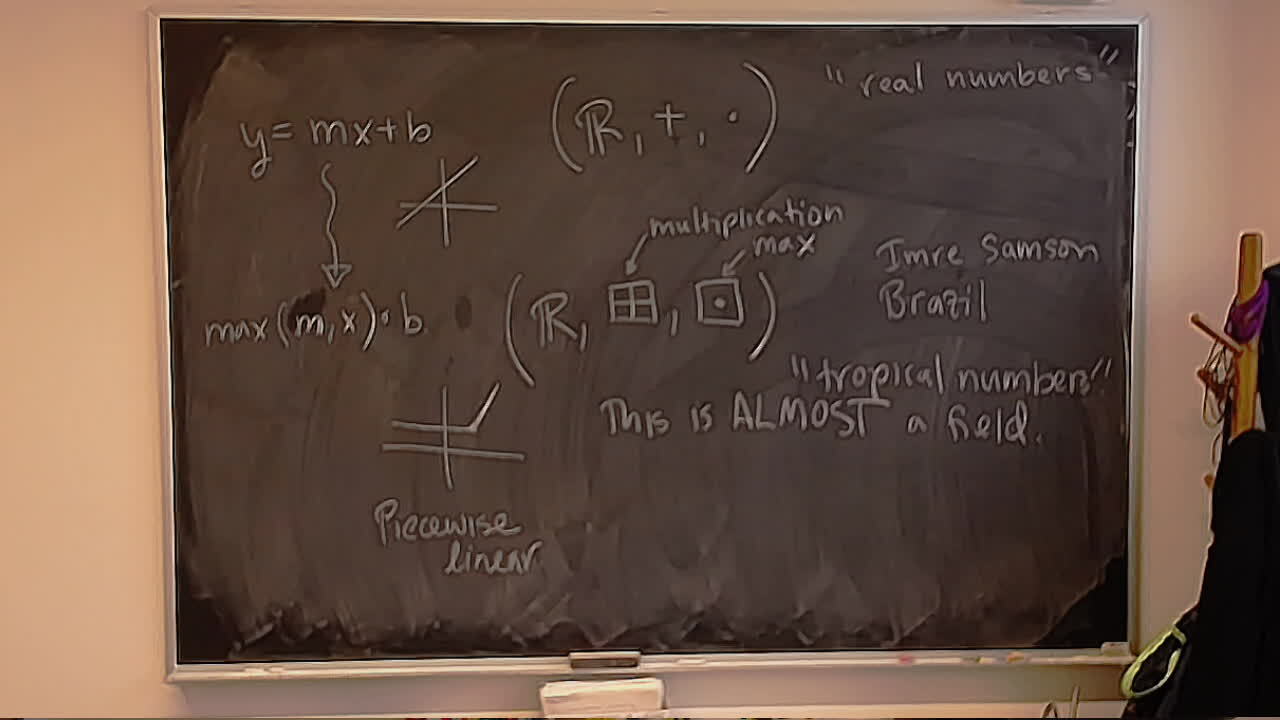 "real numbers"
y = mx+b
(ℝ, +, ·)
multiplication
max
(ℝ, ⊞, ⊡)
max(m,x)·b
Imre Samson
Brazil
"tropical numbers"
This is ALMOST a field.
Piecewise
linear